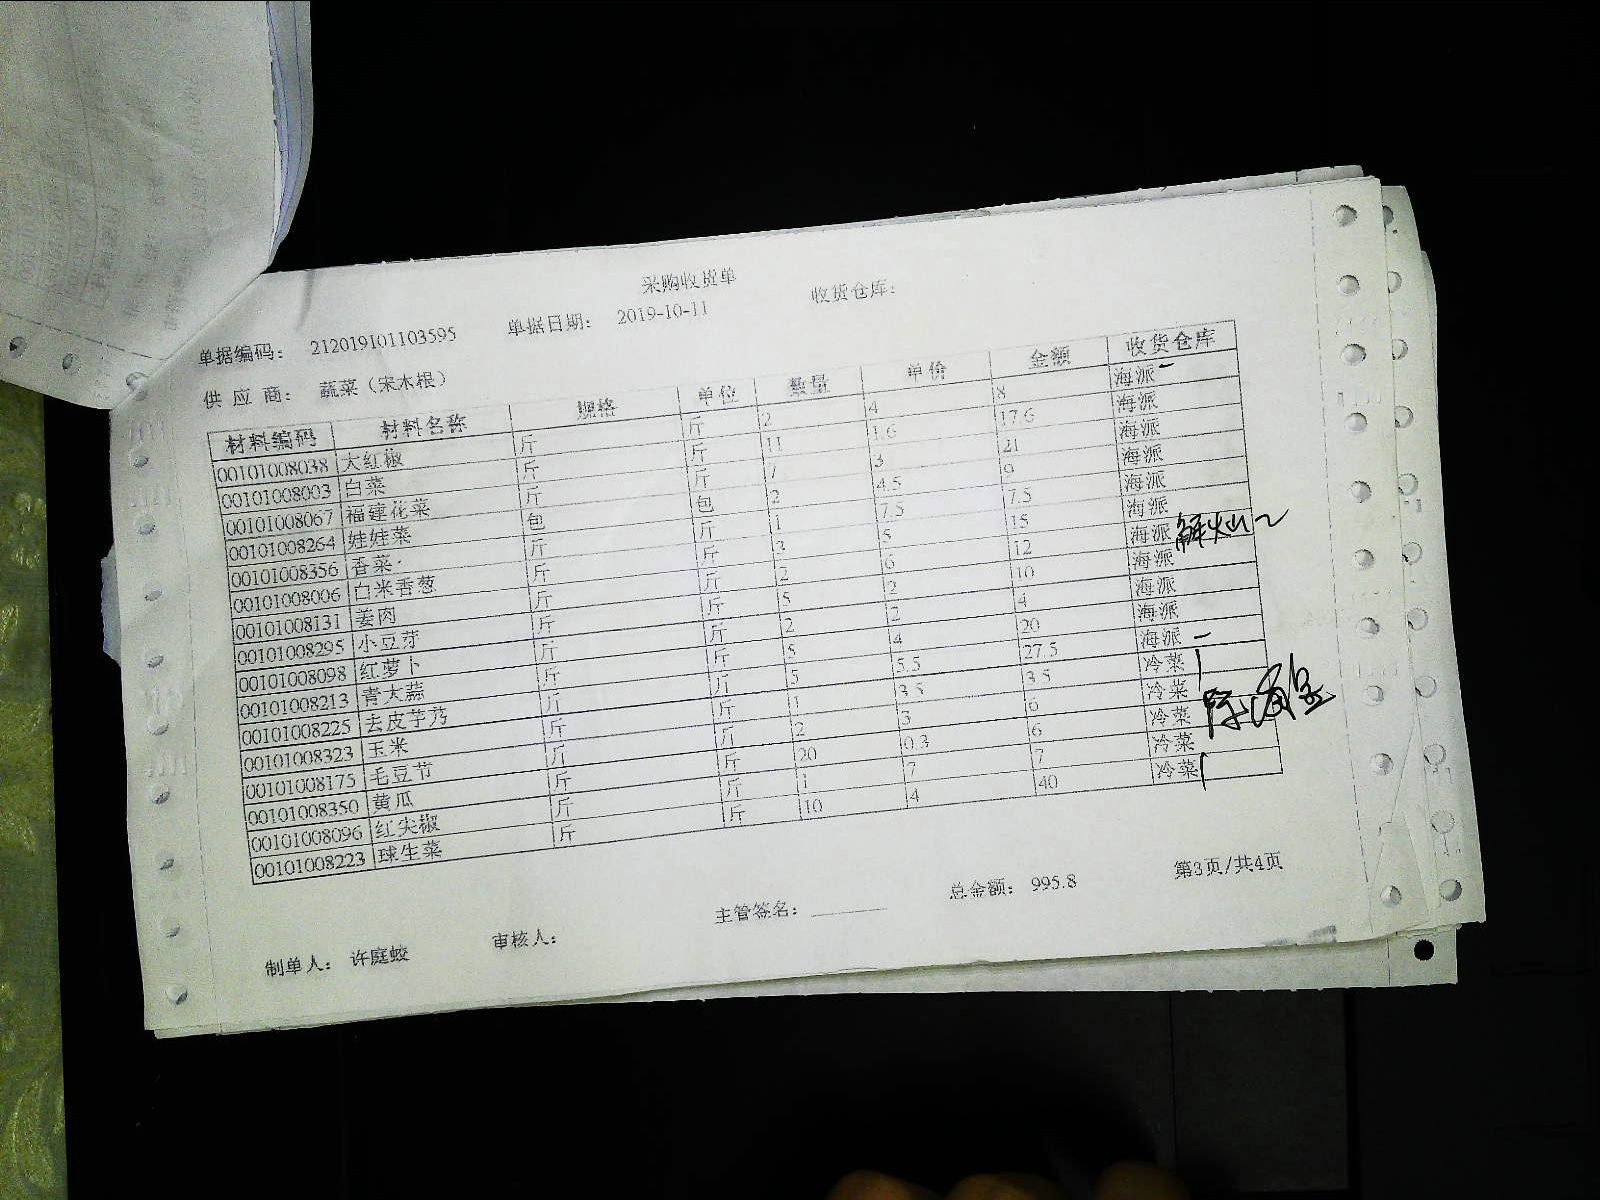 采购收货单
单据编码： 212019101103595 单据日期： 2019-10-11 收货仓库：
供 应 商： 蔬菜（宋木根）
材料编码 材料名称 规格 单位 数量 单价 金额 收货仓库
00101008038 大红椒 斤 斤 2 4 8 海派
00101008003 白菜 斤 斤 11 1.6 17.6 海派
00101008067 福建花菜 斤 斤 7 3 21 海派
00101008264 娃娃菜 包 包 2 4.5 9 海派
00101008356 香菜 斤 斤 1 7.5 7.5 海派
00101008006 白米香葱 斤 斤 3 5 15 海派
00101008131 姜肉 斤 斤 2 6 12 海派
00101008295 小豆芽 斤 斤 5 2 10 海派
00101008098 红萝卜 斤 斤 2 2 4 海派
00101008213 青大蒜 斤 斤 5 4 20 海派
00101008225 去皮芋艿 斤 斤 5 5.5 27.5 海派
00101008323 玉米 斤 斤 1 3.5 3.5 冷菜
00101008175 毛豆节 斤 斤 2 3 6 冷菜
00101008350 黄瓜 斤 斤 20 0.3 6 冷菜
00101008096 红尖椒 斤 斤 1 7 7 冷菜
00101008223 球生菜 斤 斤 10 4 40 冷菜
总金额： 995.8 第3页/共4页
制单人： 许庭蛟 审核人： 主管签名：